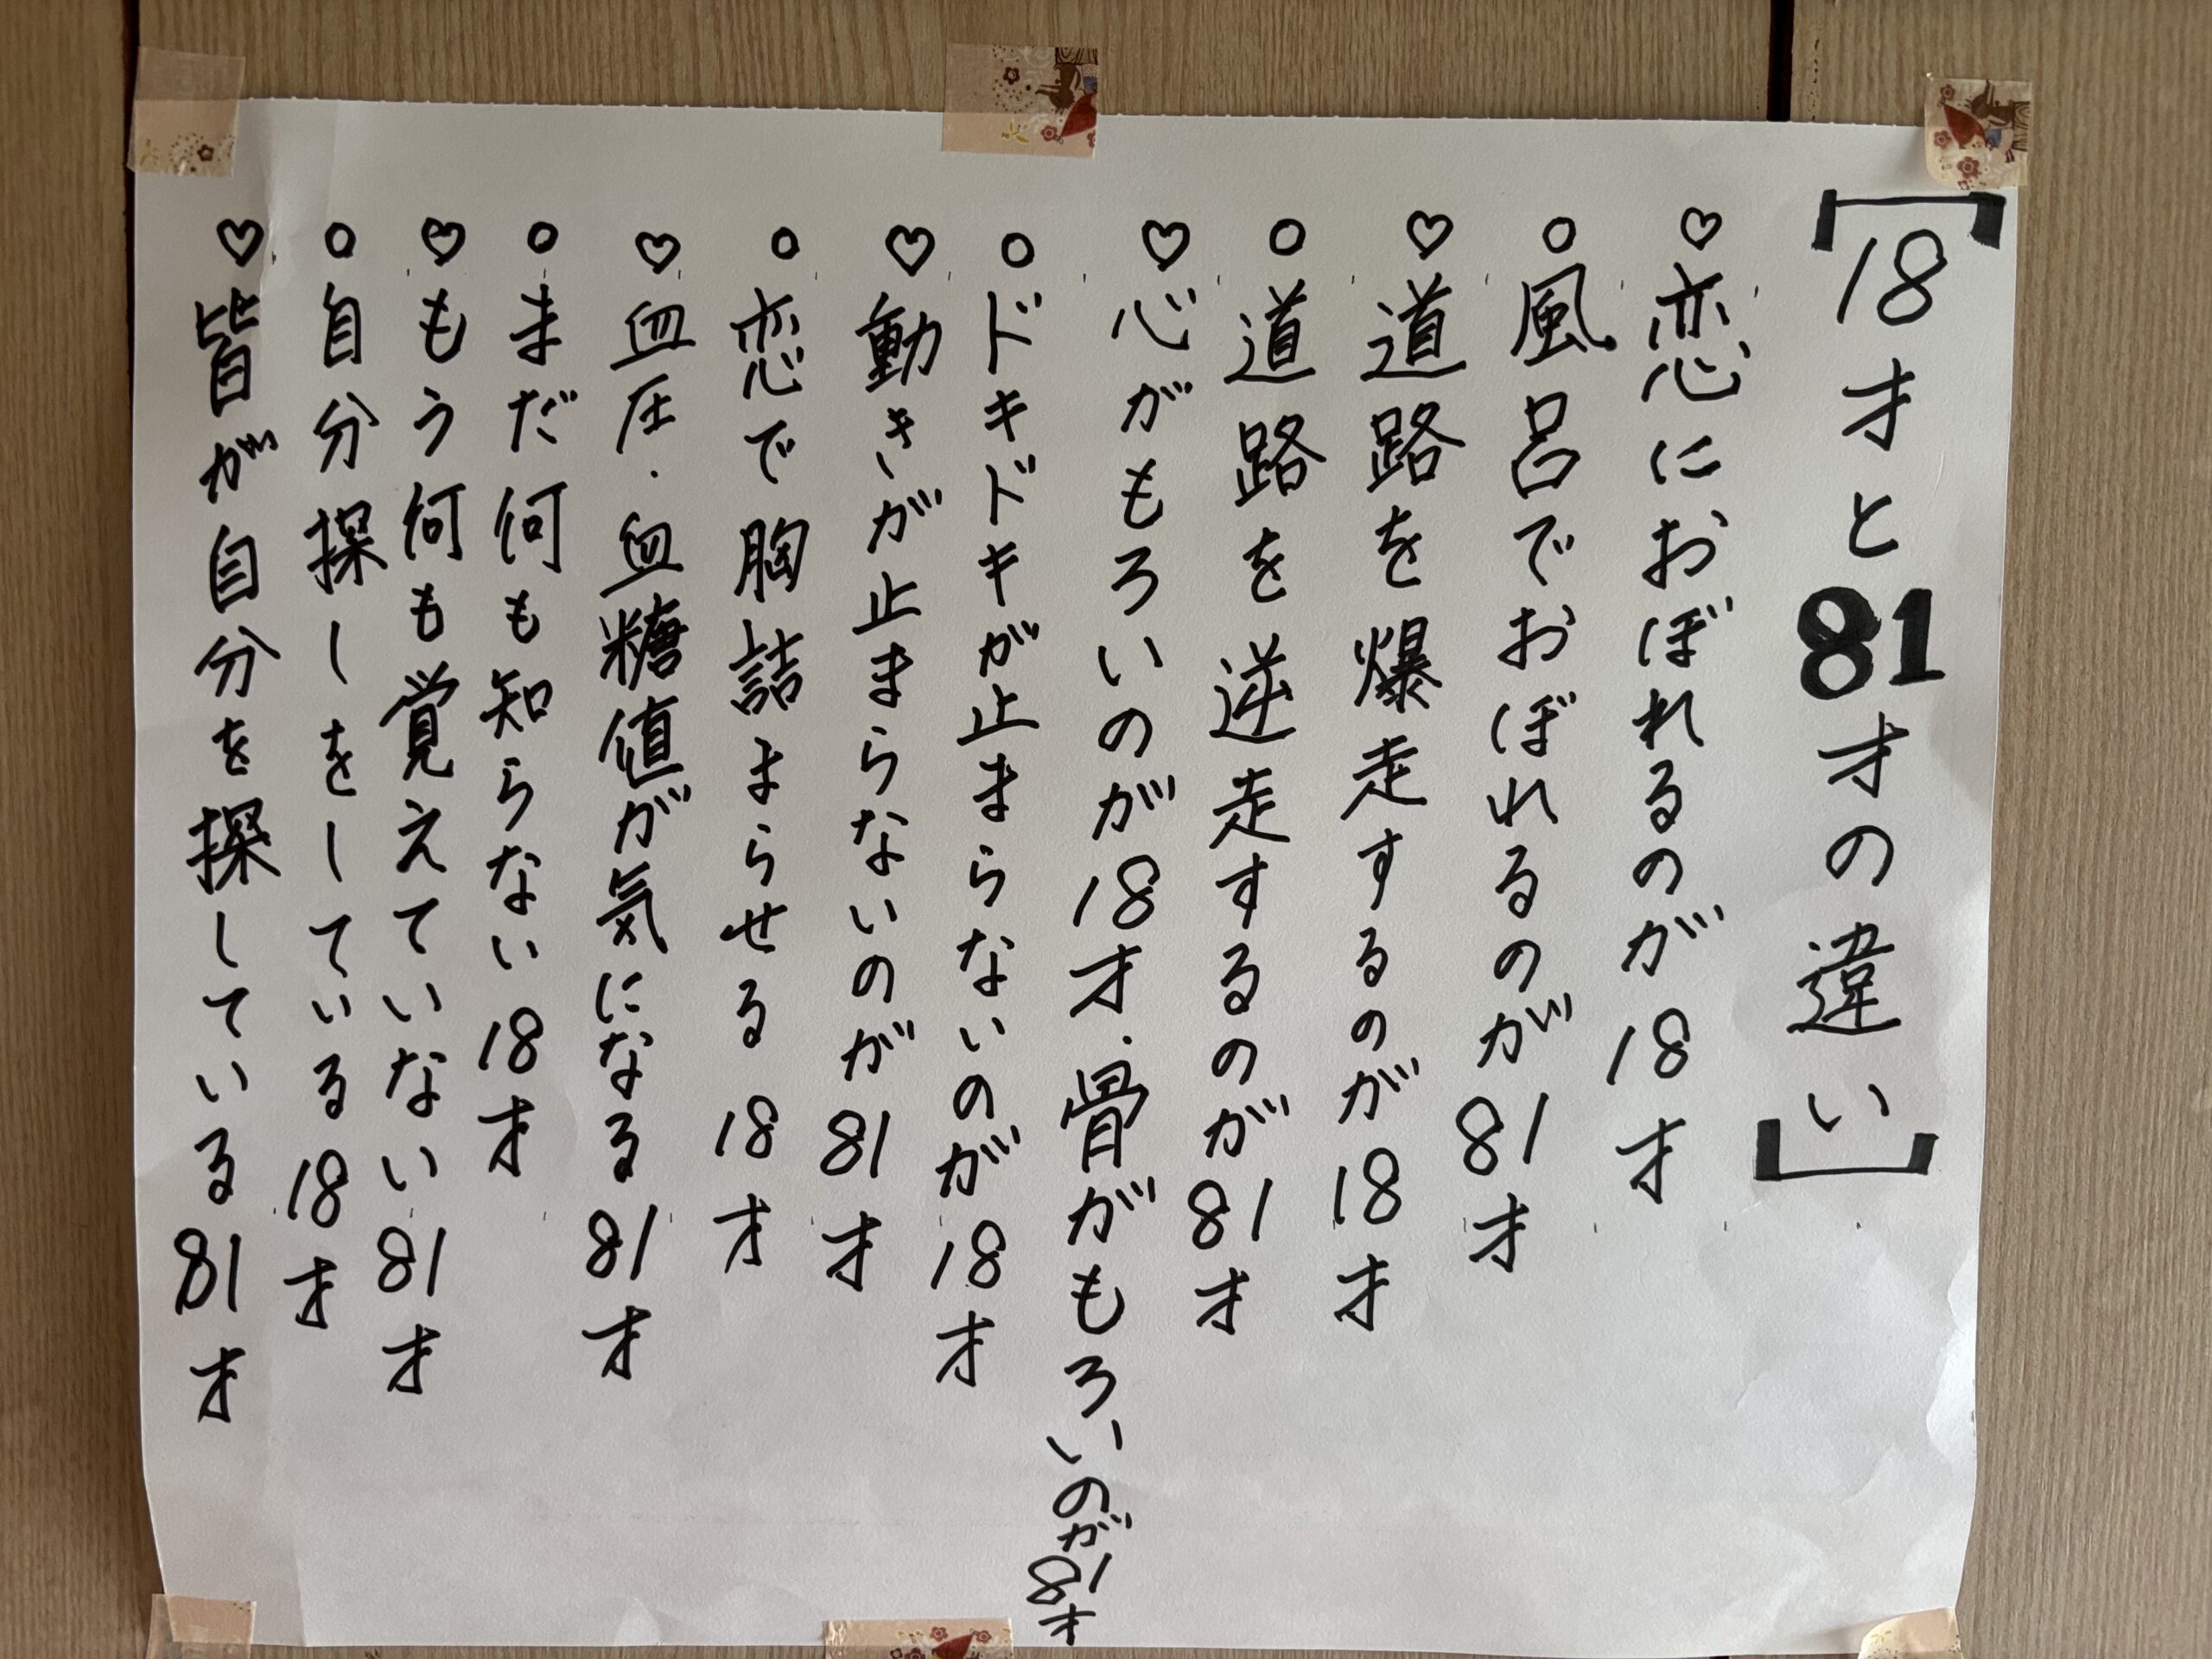 「18才と81才の違い」
♡恋におぼれるのが18才
○風呂でおぼれるのが81才
♡道路を爆走するのが18才
○道路を逆走するのが81才
♡心がもろいのが18才.骨がもろいのが81才
○ドキドキが止まらないのが18才
♡動きが止まらないのが81才
○恋で胸詰まらせる18才
♡血圧.血糖値が気になる81才
○まだ何も知らない18才
♡もう何も覚えていない81才
○自分探しをしている18才
♡皆が自分を探している81才